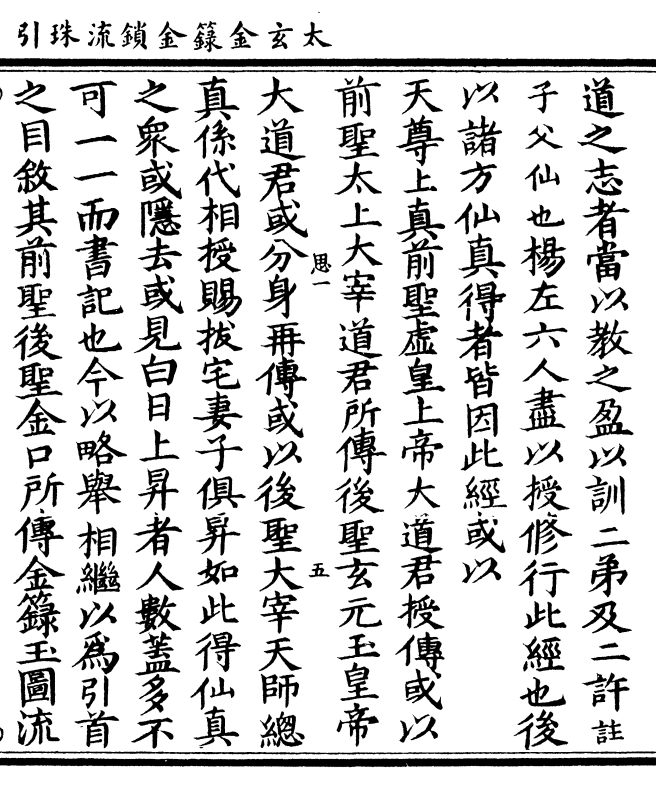 太玄金籙金鎖流珠引
道之志者當以教之盈以訓二弟及二許註
子父仙也楊左六人盡以授修行此經也後
以諸方仙真得者皆因此經或以
天尊上真前聖虛皇上帝大道君授傳或以
前聖太上大宰道君所傳後聖玄元玉皇帝
思一 五
大道君或分身再傳或以後聖大宰天師總
真係代相授賜拔宅妻子俱昇如此得仙真
之眾或隱去或見白日上昇者人數蓋多不
可一一而書記也今以略舉相繼以為引首
之目敘其前聖後聖金口所傳金籙玉圖流